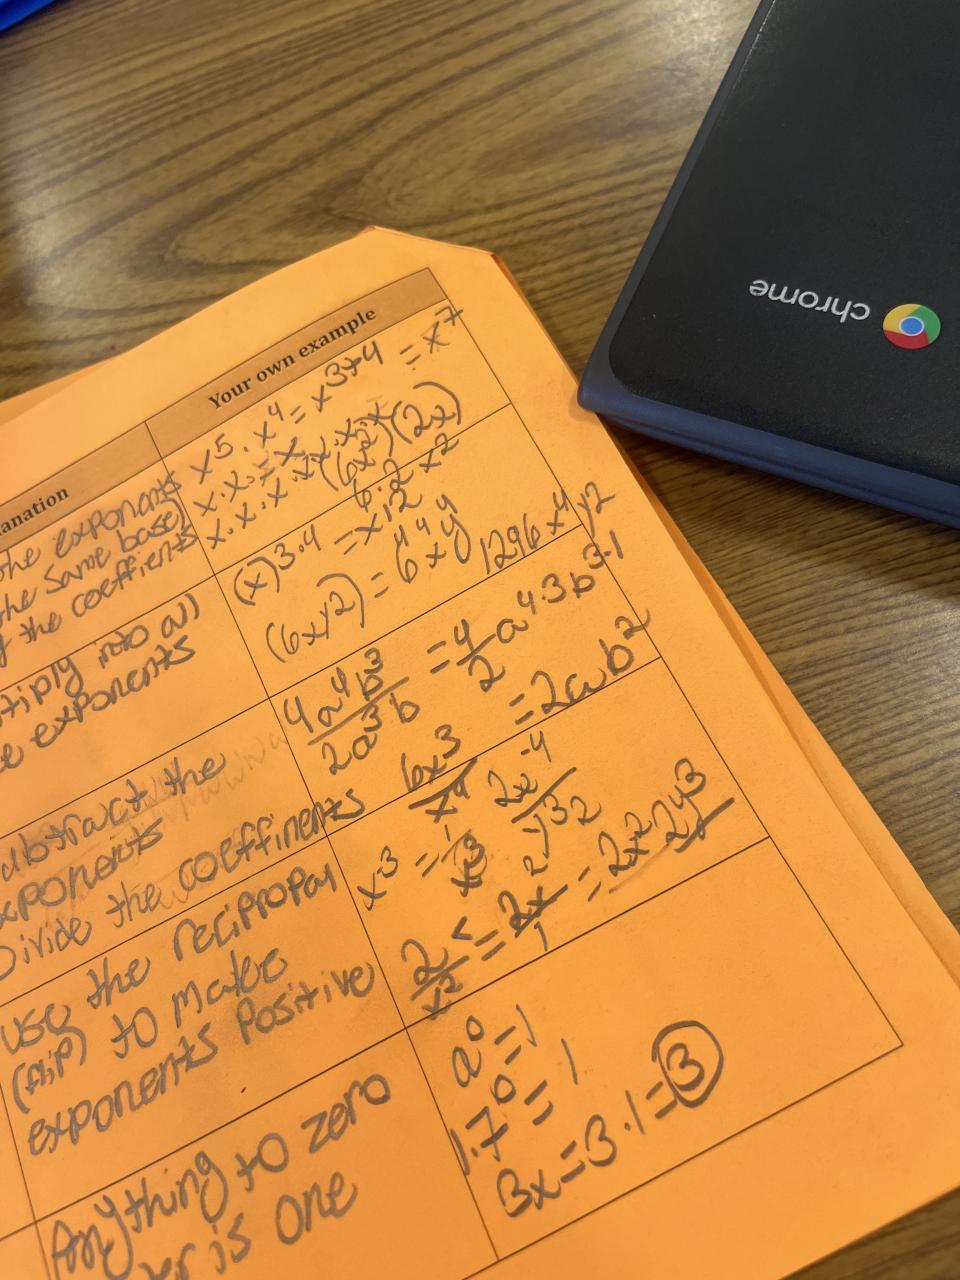 chrome
Your own example
anation
the exponents
the same base
the coeffients
x⁵ · x⁴ = x³⁺⁴ = x⁷
(6x²)(2x)
6·2 x²
tiply into all
e exponents
(x)³·⁴ = x¹²
1296x⁴y²
abtract the
xponents
Divide the coeffinents
4a⁴b³/2a³b = 4/2 a⁴·³b³·¹
= 2ab²
6x³/x⁴
use the recipropal
(flip) to make
exponents positive
2x⁻⁴
= 2x²
2y³
Anything to zero
er is one
a⁰ = 1
1.7⁰ = 1
3x = 3·1 = 3